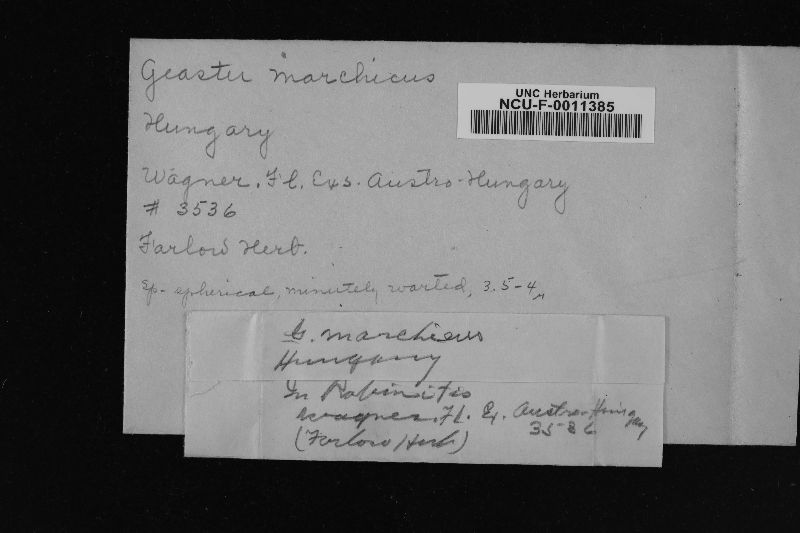 Geaster marchicus
UNC Herbarium
NCU-F-0011385
Hungary
Wagner. Fl. Exs. Austro-Hungary
# 3536
Farlow Herb.
Sp- spherical, minutely warted, 3.5-4μ
G. marchicus
Hungary
In Robinitis
Wagner. Fl. Ex. Austro-Hungary
3536
(Farlow Herb)